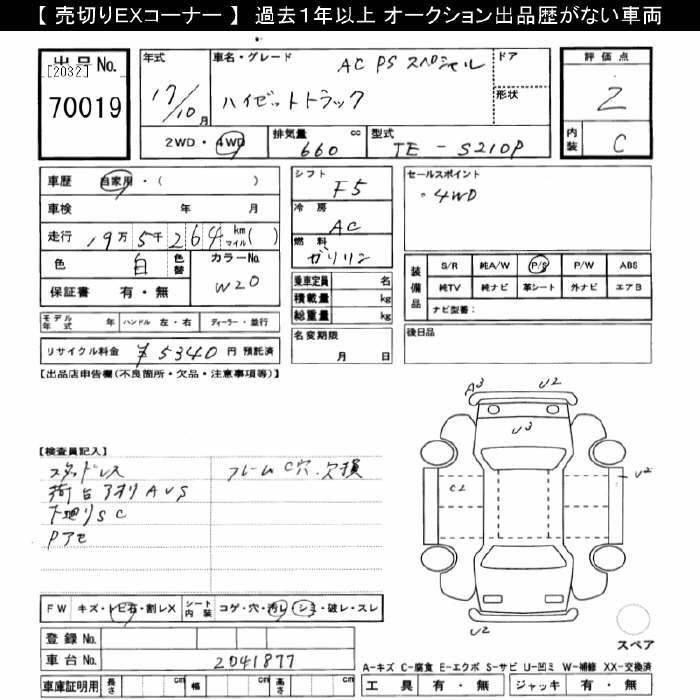 【 売切りEXコーナー 】 過去1年以上 オークション出品歴がない車両
出品 No.
[2032]
70019
年式
17/10月
車名・グレード
AC PS スペシャル
ハイゼットトラック
ドア
形状
評価点
2
内装
C
2WD・4WD
排気量
660 cc
型式
TE - S210P
車歴
自家用・( )
車検 年 月
走行 19万5千264 km マイル( )
色 白 色替
カラーNo
W20
保証書 有・無
シフト
F5
冷房
AC
燃料
ガソリン
乗車定員 名
積載量 kg
総重量 kg
セールスポイント
・4WD
装備品
S/R 純A/W P/S P/W ABS
純TV 純ナビ 革シート 外ナビ エアB
ナビ型番：
モデル年式 年 ハンドル 左・右 ディーラー・並行
名変期限
月 日
後日品
リサイクル料金 ¥5340 円 預託済
【出品店申告欄(不良箇所・欠品・注意事項等)】
【検査員記入】
スタッドレス
荷台アオリAUS
下廻りSC
Pアセ
フレームC穴、欠損
A3
U2
U3
C2
U2
U2
FW キズ・トビ石・割レX シート内装 コゲ・穴・汚レ・シミ・破レ・スレ
登録 No.
車台 No. 2041877
車庫証明用 長さ cm 幅 cm 高さ cm
スペア
A-キズ C-腐食 E-エクボ S-サビ U-凹ミ W-補修 XX-交換済
工具 有・無 ジャッキ 有・無